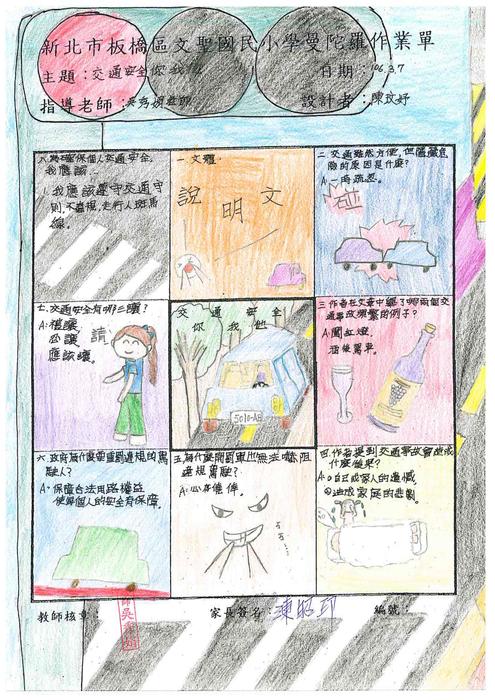 新北市板橋區文聖國民小學曼陀羅作業單
主題：交通安全你我他
日期：106.3.7
指導老師：
設計者：陳玟妤
八.為確保個人交通安全,
我應該…
1.我應該遵守交通守
則,不違規,走行人斑馬
線。
一.文體
說明文
二.交通雖然方便,但隱藏危
險的原因是什麼?
A:一時疏忽。
碰
七.交通安全有哪三讓?
A:禮讓
公讓
應該讓。
請
交通安全
你我他
5010-AB
三.作者在文章中舉了哪兩個交
通事故頻繁的例子?
A:闖紅燈,
酒後駕車。
六.政府為什麼要重罰違規的駕
駛人?
A:保障合法用路權益
使每個人的安全有保障。
五.為什麼開罰單也無法嚇阻
違規駕駛?
A:心存僥倖。
四.作者提到交通事故會造成
什麼後果?
A:①自己或家人的遺憾,
②造成家庭的悲劇。
教師核章：
家長簽名：陳昭印
編號：